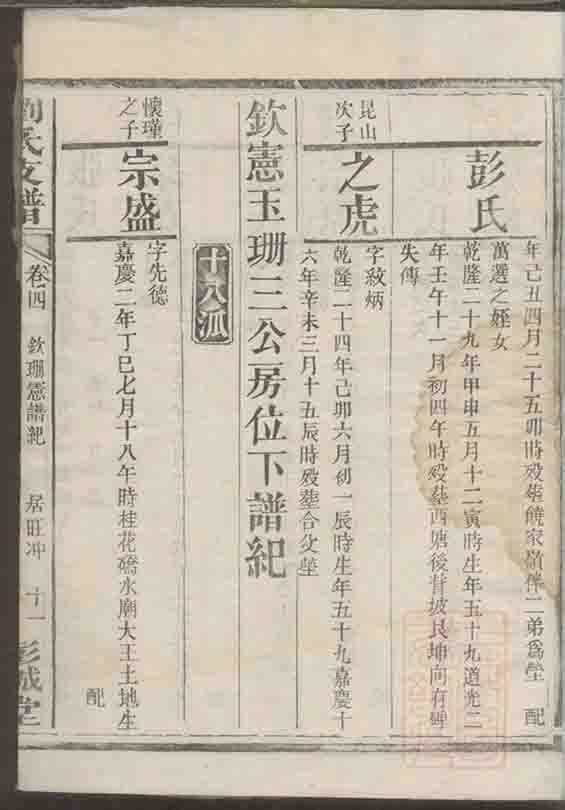 年己丑四月二十五卯時歿塟饒家嶺伴二弟爲塋 配
彭氏
萬選之姪女
乾隆二十九年甲申五月十二寅時生年五十九道光二
年壬午十一月初四午時歿塟西塘後背坡艮坤向有碑
失傳
昆山
次子
之虎
字紋炳
乾隆二十四年己卯六月初一辰時生年五十九嘉慶十
六年辛未三月十五辰時歿塟合父塋
欽憲玉珊三公房位下譜紀
十八派
懷瑾
之子
宗盛
字先德
嘉慶二年丁巳七月十八午時桂花礄水廟大王土地生
配
劉氏支譜
卷四
欽珊憲譜紀
居旺冲
十一
彭城堂